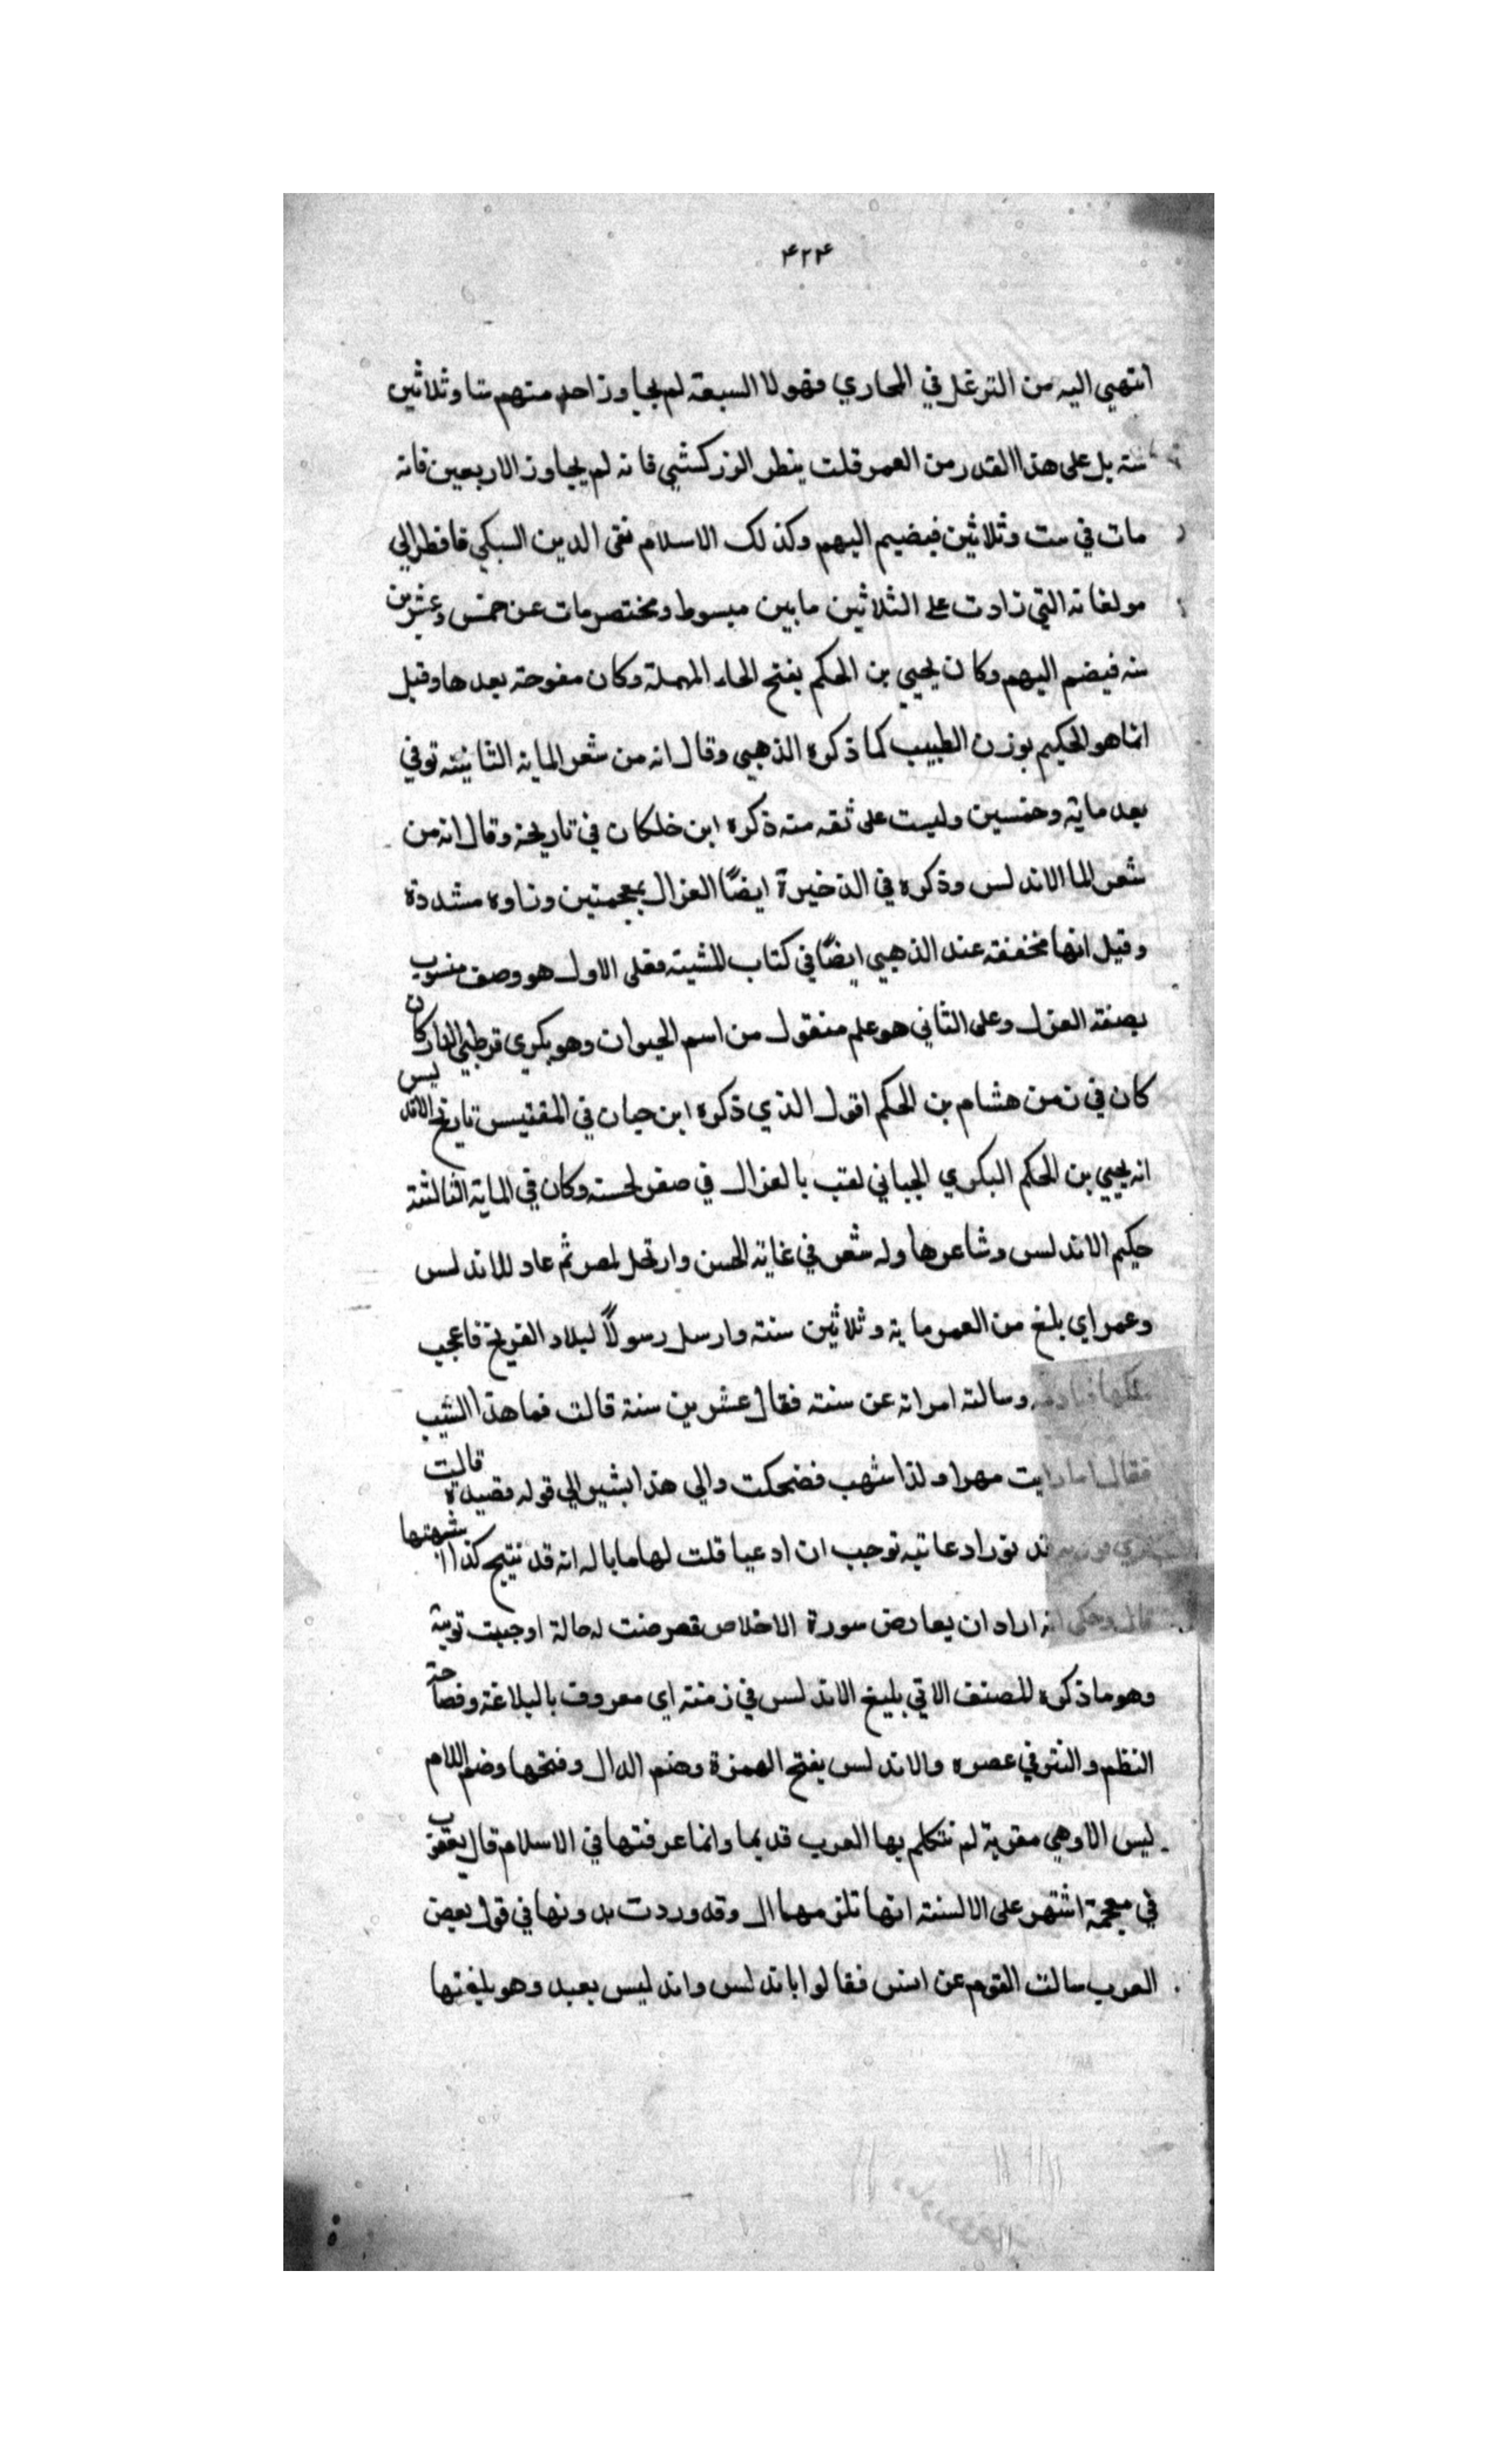 ۴۲۴
انتهي اليه من الترغل في المجاري فهولا السبعة لم يجاوز احد منهم ستا وثلاثين
سنة بل على هذا القدر من العمر قلت ينظر الزركشي فانه لم يجاوز الاربعين فانه
مات في ست وثلاثين فيضم اليهم وكذلك الاسلام تقى الدين السبكي فافطر الي
مولفاته التي زادت على الثلاثين مابين مبسوط ومختصر مات عن خمس وعشرين
سنه فيضم اليهم وكان يحيي بن الحكم بفتح الحاء المهملة وكان مفوحة بعدها وقيل
انما هو الحكيم بوزن الطبيب كما ذكره الذهبي وقال انه من شعر الماية الثانيته توفي
بعد ماية وخمسين وليست على ثقه منه ذكره ابن خلكان في تاريخه وقال انه من
شعر الما الاندلس وذكره في الذخيرة ايضًا الغزال بمعجمتين وزاوه مشددة
وقيل انها مخففة عند الذهبي ايضًا في كتاب المشيته فعلى الاول هو وصف منسوب
بصنعة الغزل وعلى الثاني هو علم منقول من اسم الحيوان وهو بكري قرطبي الدار كان
كان في زمن هشام بن الحكم اقول الذي ذكره ابن حيان في المقتيس تاريخ الاندليس
انه يحيي بن الحكم البكري الجياني لقب بالغزال في صغر لحسنه وكان في الماية الثالثة
حكيم الاندلس وشاعرها وله شعر في غاية الحسن وارتحل لمصر ثم عاد للاندلس
وعمر اي بلغ من العمر ماية وثلاثين سنة وارسل رسولاً لبلاد الفرنج فاعجب
ملكها فنادمه وسالته امراته عن سنه فقال عشرين سنة قالت فما هذا الشيب
فقال اما رايت مهرا ولذا شهب فضحكت والي هذا بشير الي قوله قصيدة قالت
قد نورادعاتبه توجب ان ادعيا قلت لها مابا له انه قد نتيج كذا اشهتها
قال وحكى انه اراد ان يعارض سورة الاخلاص فعرضت له حالة اوجبت توبته
وهو ما ذكره المصنف الاتي بليغ الاندلس في زمنه اي معروف بالبلاغة وفصاحة
النظم والنثر في عصره والاندلس بفتح الهمزة وضم الدال وفتحها وضم اللام
ليس الا وهي معربة لم تتكلم بها العرب قديما وانما عرفتها في الاسلام قال يعقوب
في معجمة اشتهر على الالسنة انها تلزمها ال وقد وردت بدونها في قول بعض
العرب سالت القوم عن انس فقالوا باندلس واندليس بعيد وهو بليغها